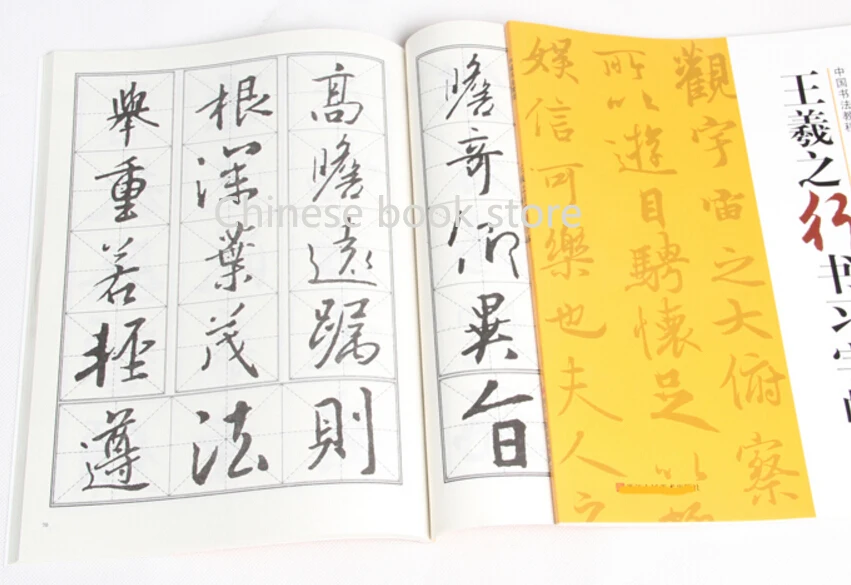 高瞻遠矚
根深葉茂
舉重若輕
遵法則
瞻奇仰異
觀宇宙之大俯察
所以遊目騁懷足以
娱信可樂也夫人之
中国书法教程
王羲之行书习字
Chinese book store